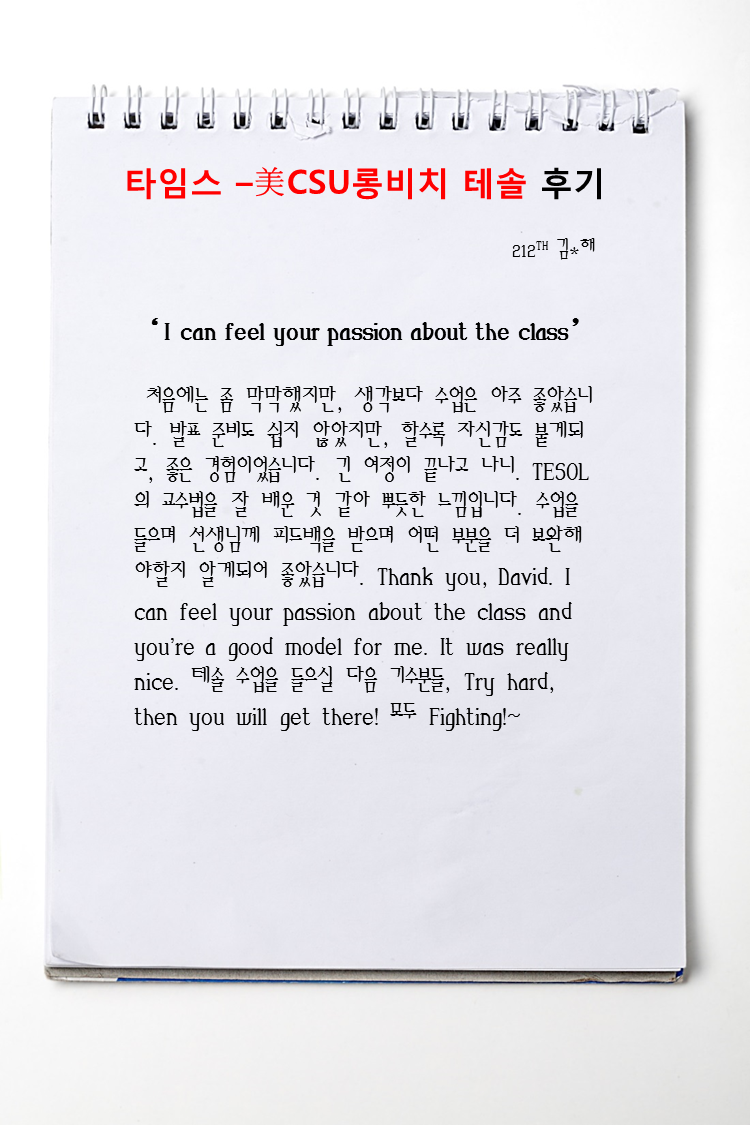 타임스 –美CSU롱비치 테솔 후기
212TH 김*해
‘I can feel your passion about the class’
처음에는 좀 막막했지만, 생각보다 수업은 아주 좋았습니
다. 발표 준비도 쉽지 않았지만, 할수록 자신감도 붙게되
고, 좋은 경험이었습니다. 긴 여정이 끝나고 나니. TESOL
의 교수법을 잘 배운 것 같아 뿌듯한 느낌입니다. 수업을
들으며 선생님께 피드백을 받으며 어떤 부분을 더 보완해
야할지 알게되어 좋았습니다. Thank you, David. I
can feel your passion about the class and
you’re a good model for me. It was really
nice. 테솔 수업을 들으실 다음 기수분들, Try hard,
then you will get there! 모두 Fighting!~